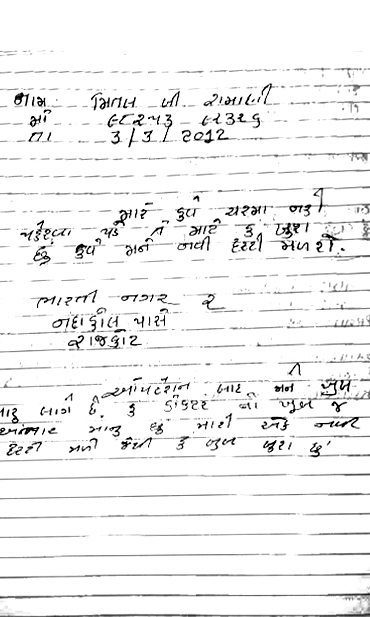 નામ મિતલ બી રામાણી
મો ૯૮૨૫૩ ૯૨૩૨૬
તા 3/3/2012
મારે હવે ચશ્મા નહી
પહેરવા પડે તે માટે હું ખુશ
છું હવે મને નવી દ્રષ્ટી મળશે.
ભારતી નગર ૨
પાસે
રાજકોટ
ઓપરેશન બાદ મને ખુબ
સારુ લાગે છે. હું ડોકટર નો ખુબ જ
આભાર માનુ છું મારી એક નવી
દ્રષ્ટી મળી જેથી હું ખુબ ખુશ છું